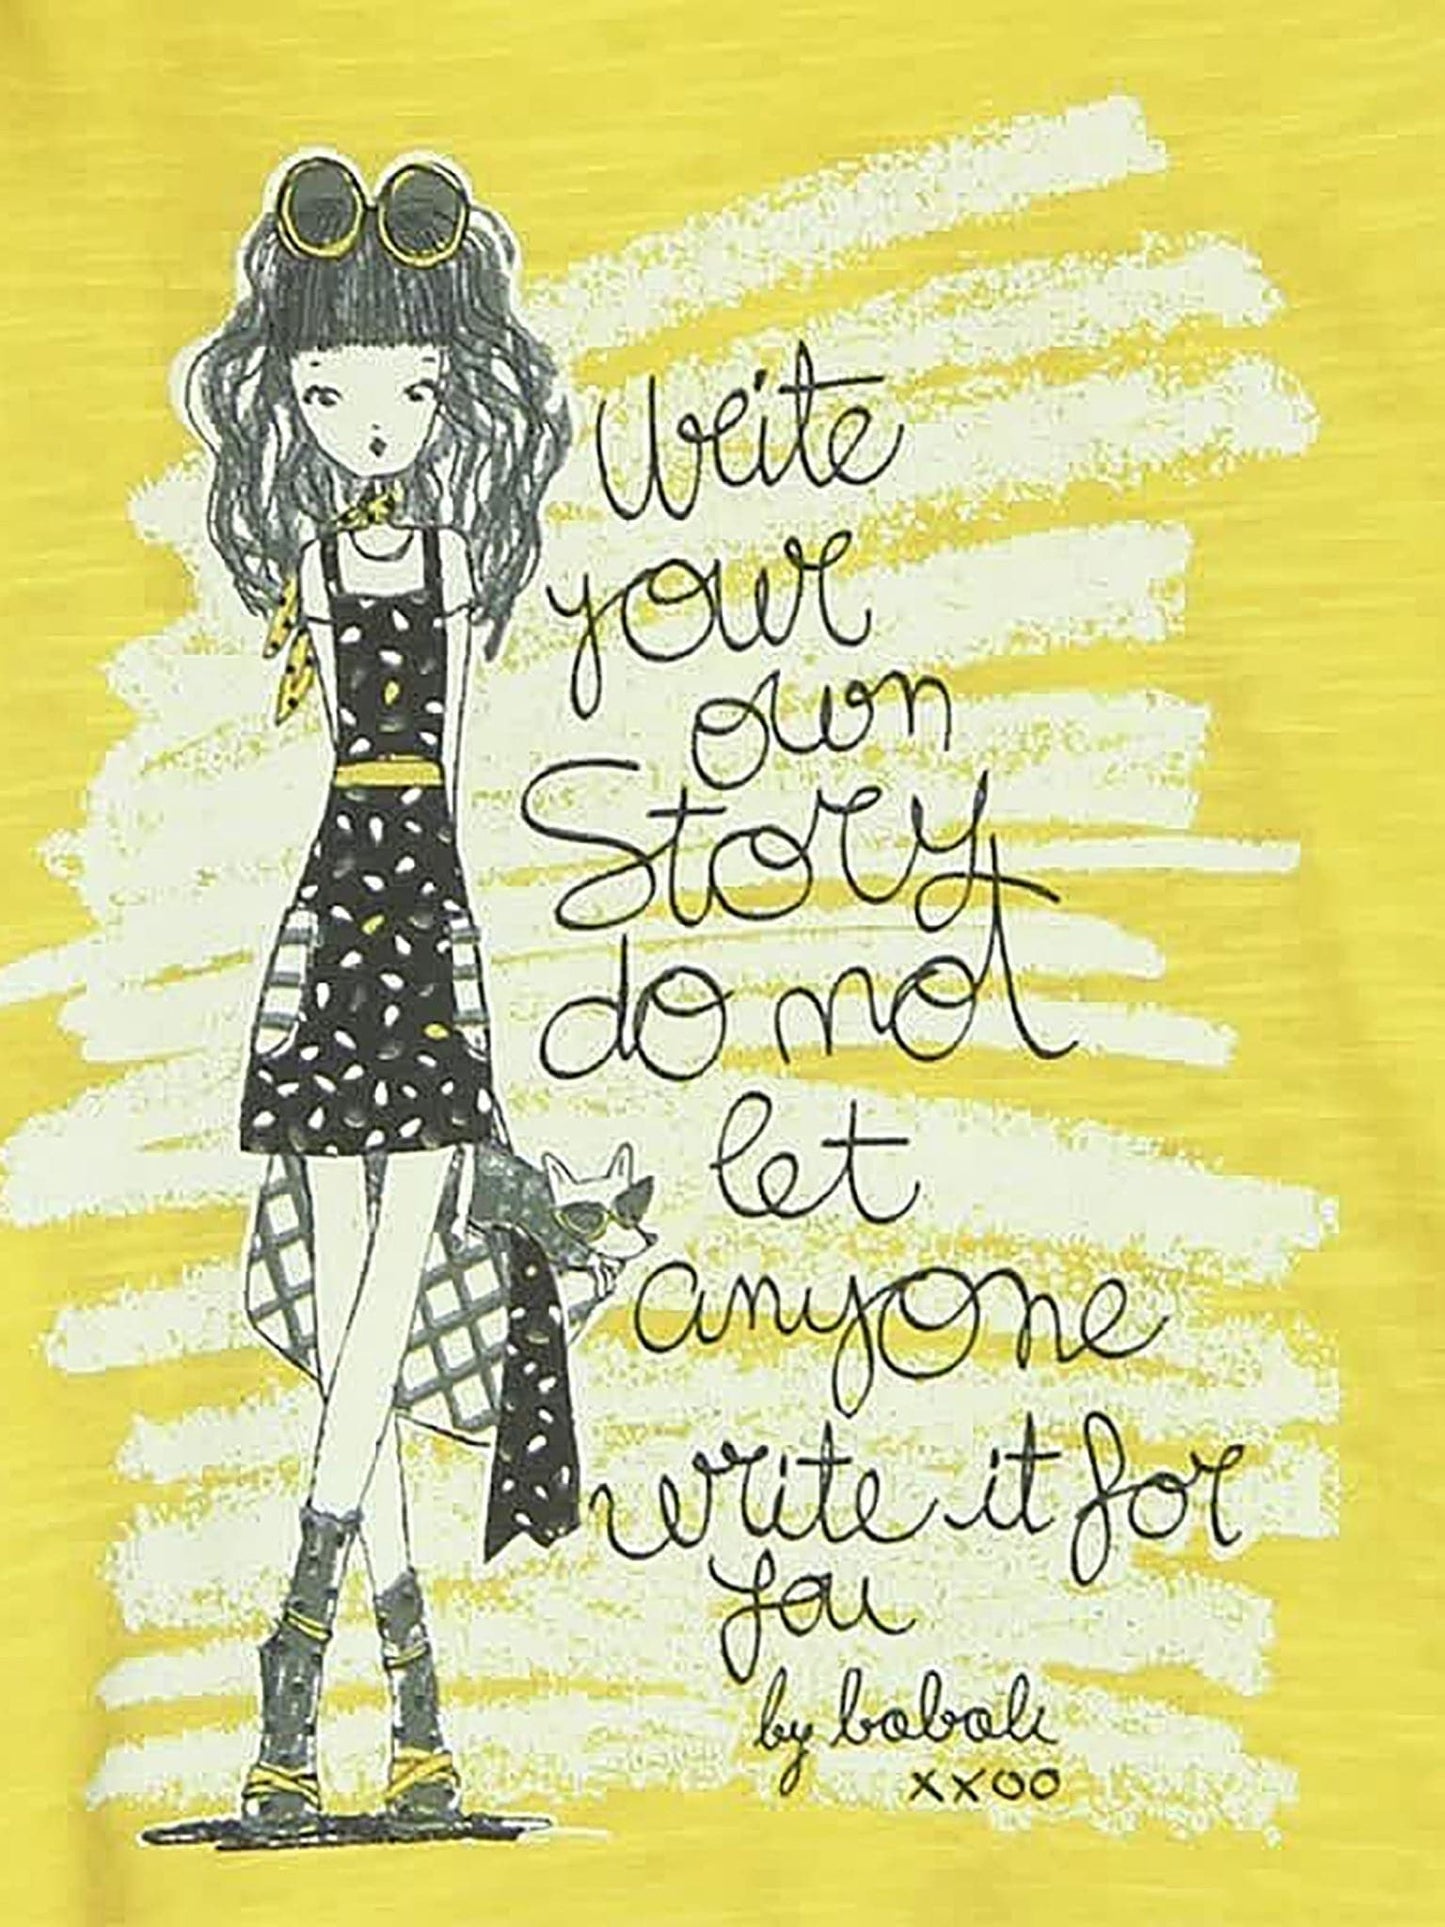 Write
your
own
Story
do not
let
anyone
write it for
you
by boboli
xxoo